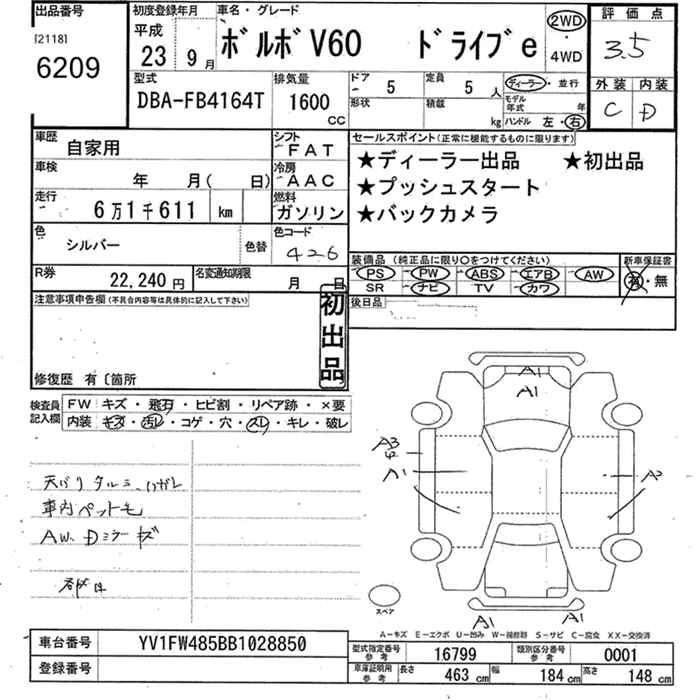 出品番号
[2118]
6209
初度登録年月
平成
23 9月
車名・グレード
ボルボ V60 ドライブe
2WD
・
4WD
評価点
3.5
外装 内装
C D
型式
DBA-FB4164T
排気量
1600
CC
ドア
5
定員
5 人
形状
積載
kg
ディーラー・並行
モデル年式 年
ハンドル 左・右
車歴
自家用
シフト
FAT
車検
年 月( 日)
冷房
AAC
走行
6万1千611 km
燃料
ガソリン
色
シルバー
色替
色コード
426
R券
22,240円
名変通知期限
月 日
セールスポイント(正常に機能するものに限ります)
★ディーラー出品 ★初出品
★プッシュスタート
★バックカメラ
装備品 (純正品に限り〇をつけてください)
新車保証書
PS PW ABS エアB AW
SR ナビ TV カワ
有・無
後日品
注意事項申告欄(不具合内容等は具体的に記入して下さい)
初出品
修復歴 有〔箇所
検査員記入欄
FW キズ・飛石・ヒビ割・リペア跡・×要
内装 キズ・汚レ・コゲ・穴・スレ・キレ・破レ
天バリタルミ、ハガレ
車内ペット毛
AW、Dミラーキズ
A1
A1
A3
A2
A1
A1
スペア
A-キズ E-エクボ U-凹み W-補修跡 S-サビ C-腐食 XX-交換済
車台番号
YV1FW485BB1028850
登録番号
型式指定番号
参考
16799
類別区分番号
参考
0001
車庫証明用
参考
長さ
463 cm
幅
184 cm
高さ
148 cm